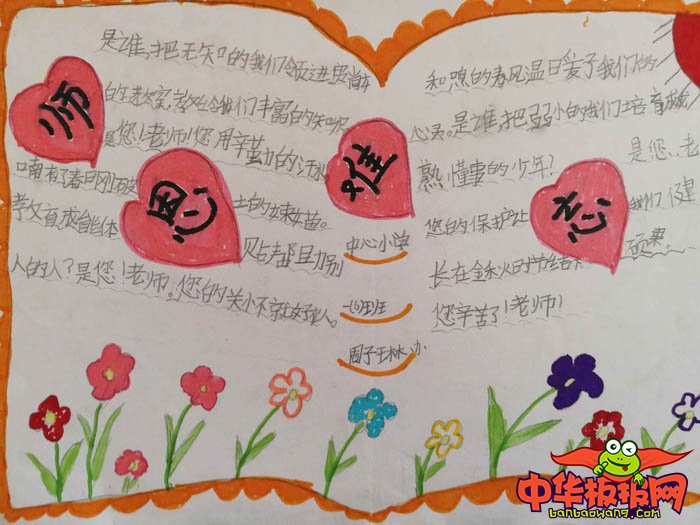 师恩难忘
是谁,把无知的我们领进宽尚
的老文室,教给令我们丰富的知识
是您!老师!您用辛勤的汗水
哺育了春日刚
土的嫩苗。
教育成能体
人的人?是您!老师。您的关小不就好似人。
和煦的春风温日爱了我们的
心灵。是谁,把弱小的我们培育成
熟懂事的少年?
是您,老
您的保护让
我们健
长在金秋火的
硕果。
您辛苦了!老师!
中心小学
一(6)班
周子王林 办
中华板报网
banbaowang.com